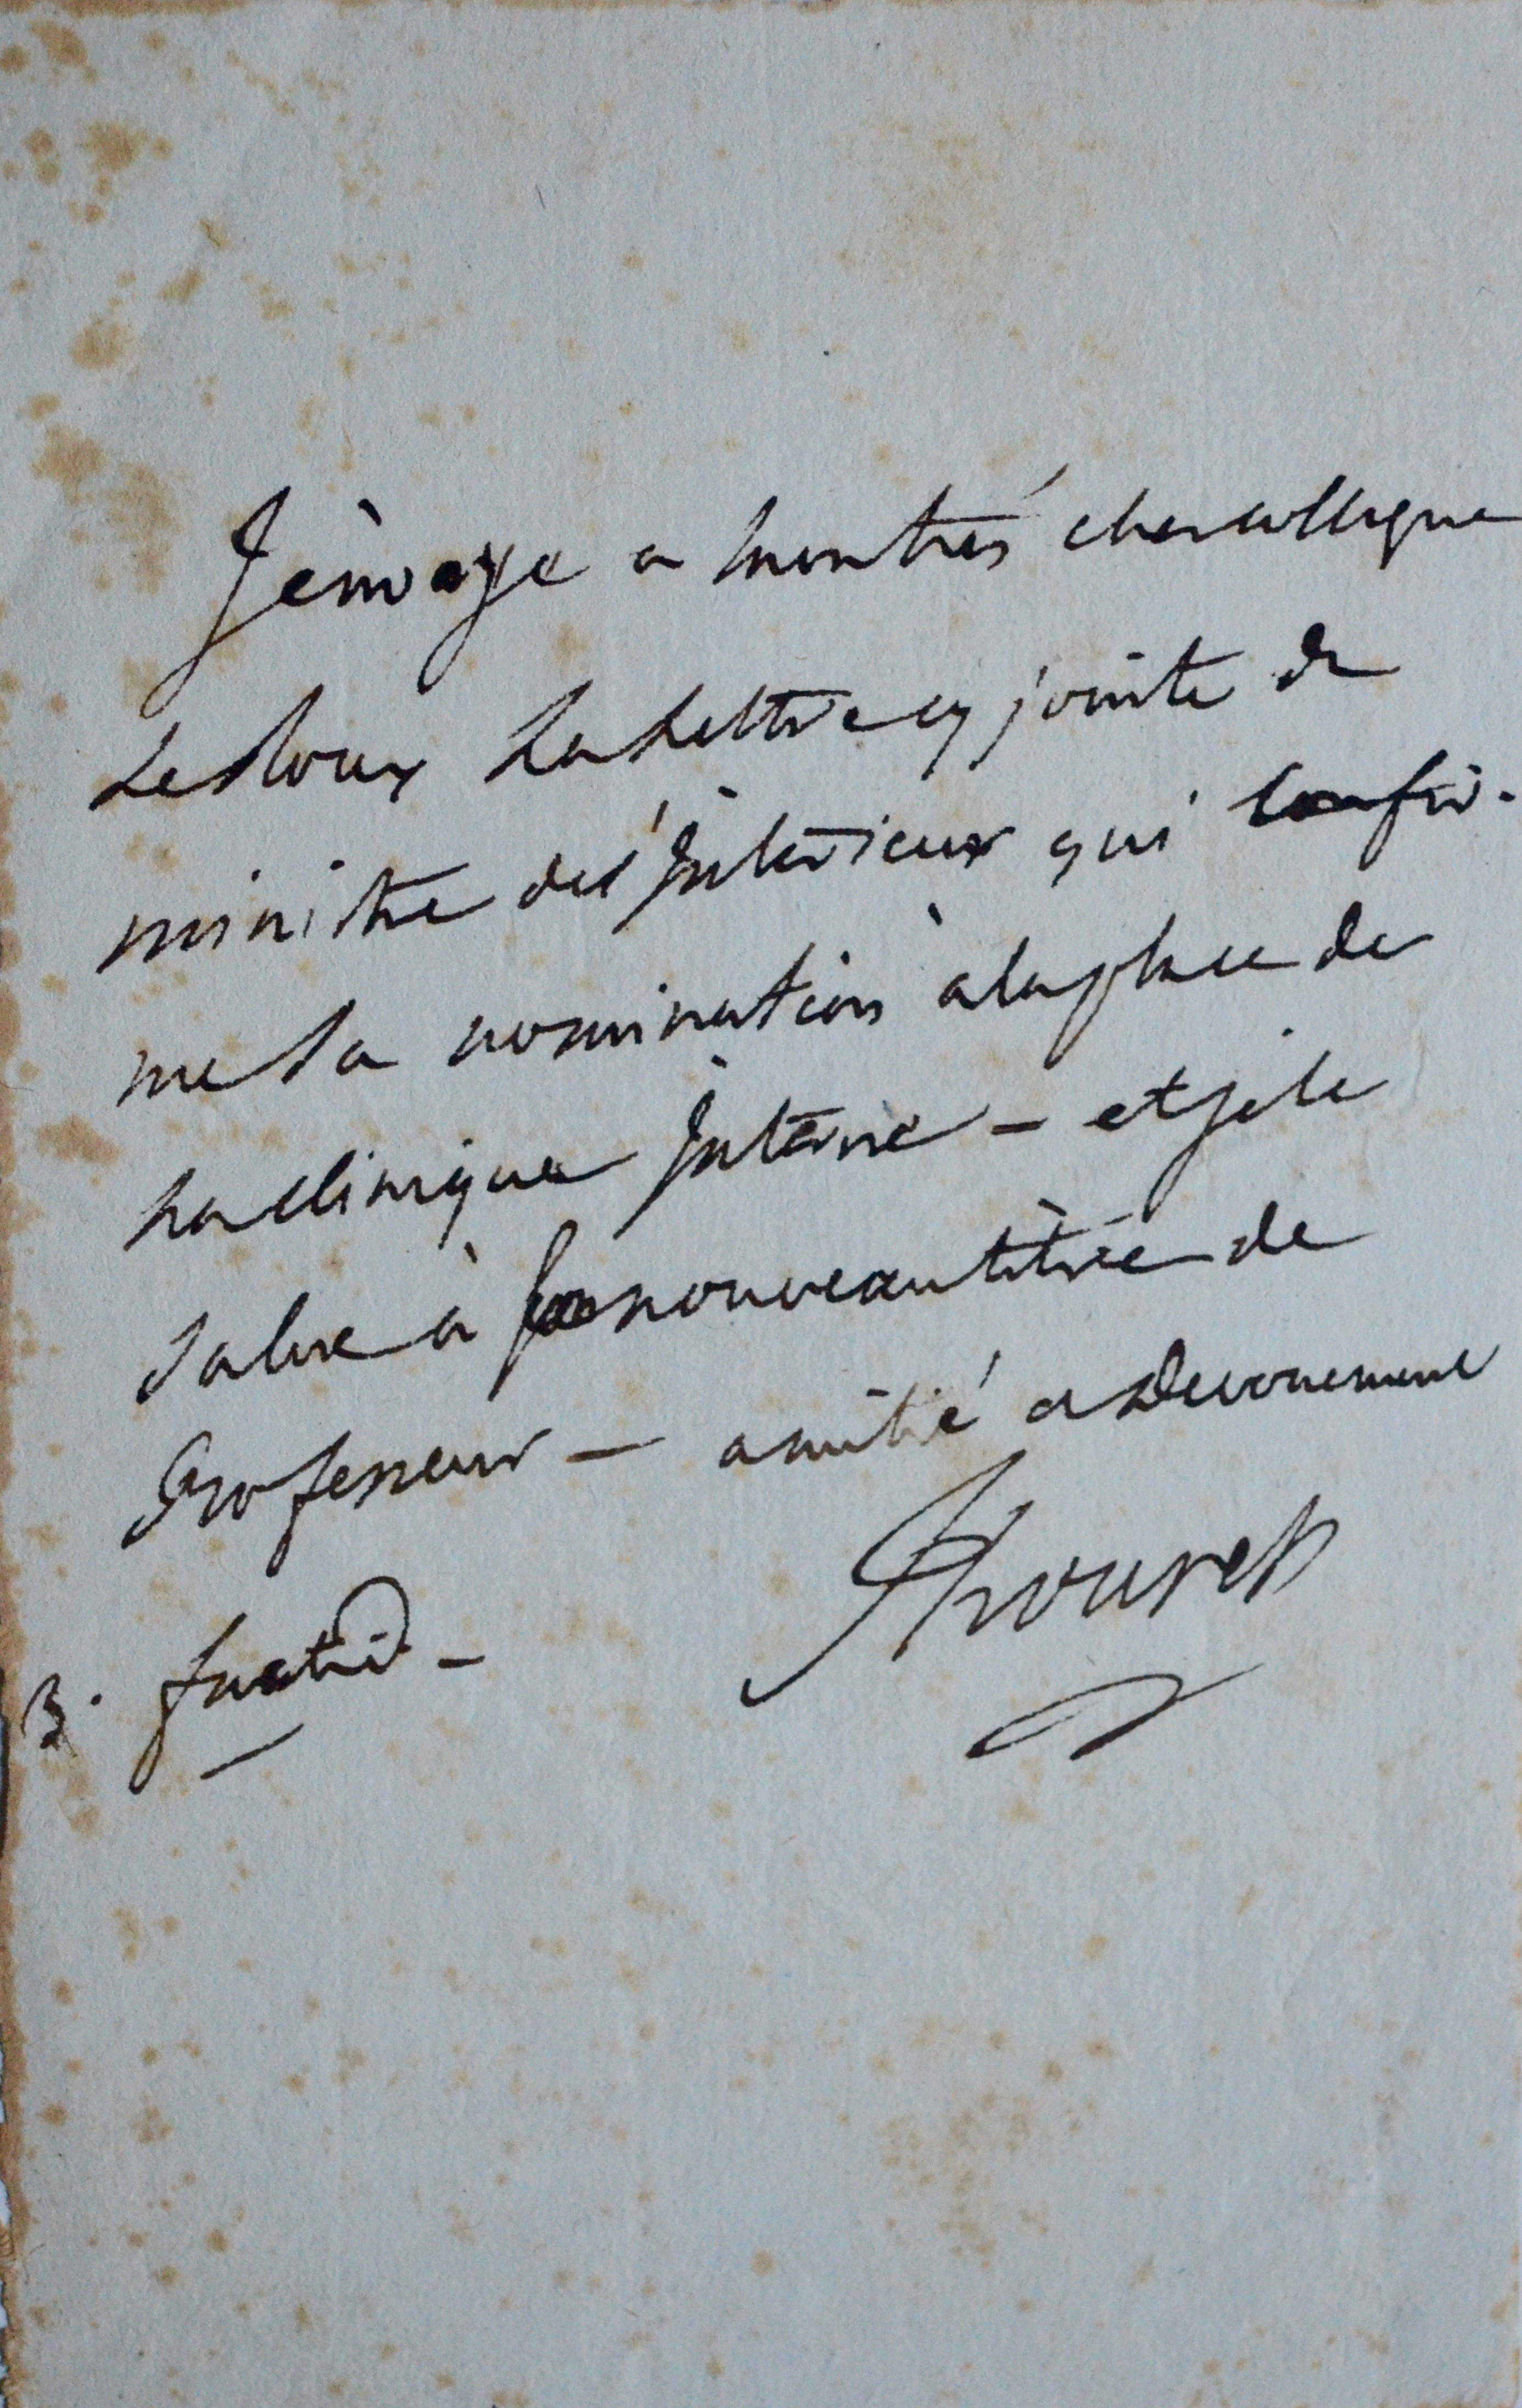 J'envoye a mon très cher collegue
Le Roux La Lettre cy jointe du
ministre de l'Interieur qui confir-
me sa nomination a la place de
La clinique Interne — et je le
salue à son nouveau titre de
Professeur — amitié et devouement
Thouret
3. fructid. —